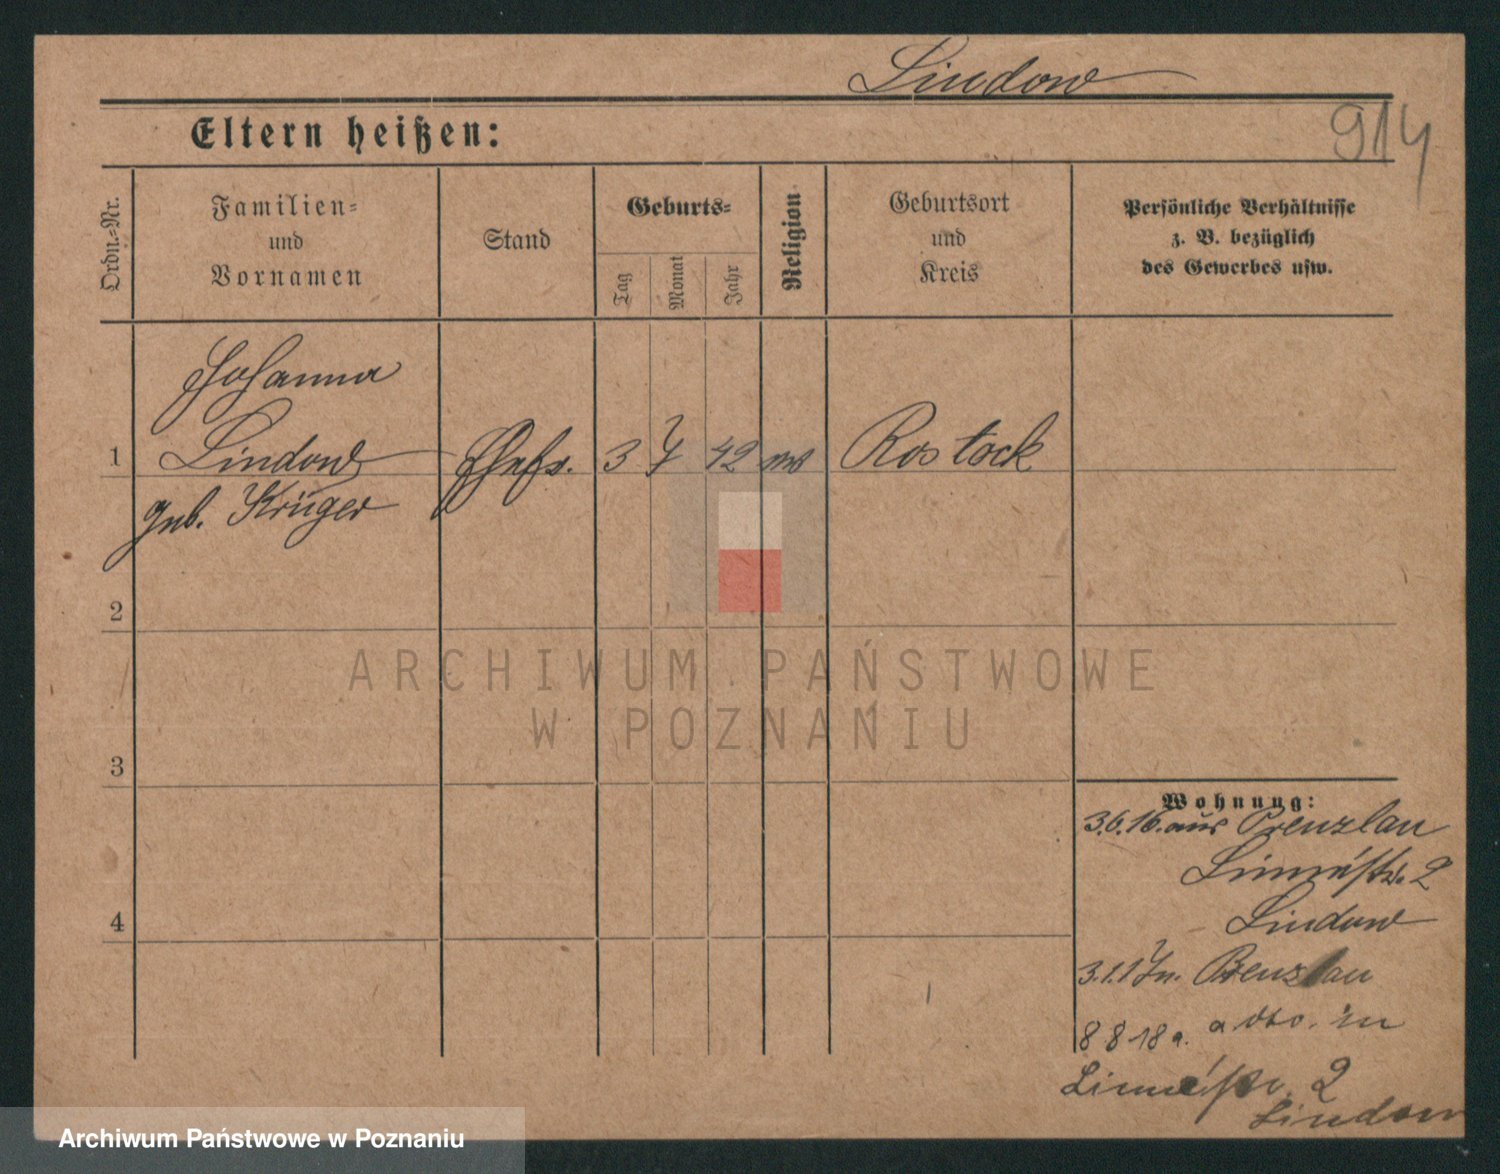 Lindow
914
Eltern heißen:
Ordn.=Nr.
Familien=
und
Vornamen
Stand
Geburts=
Tag
Monat
Jahr
Religion
Geburtsort
und
Kreis
Persönliche Verhältnisse
z. B. bezüglich
des Gewerbes usw.
Johanna
1 Lindow Ehefr. 3 7 42 Rostock
geb. Krüger
2
ARCHIWUM PAŃSTWOWE
W POZNANIU
3
Wohnung:
3.6.16. aus Prenzlau
Linnéstr. 2
4
Lindow
3.1.17 n. Prenzlau
8 8 18 a. in
Linnéstr. 2
Lindow
Archiwum Państwowe w Poznaniu